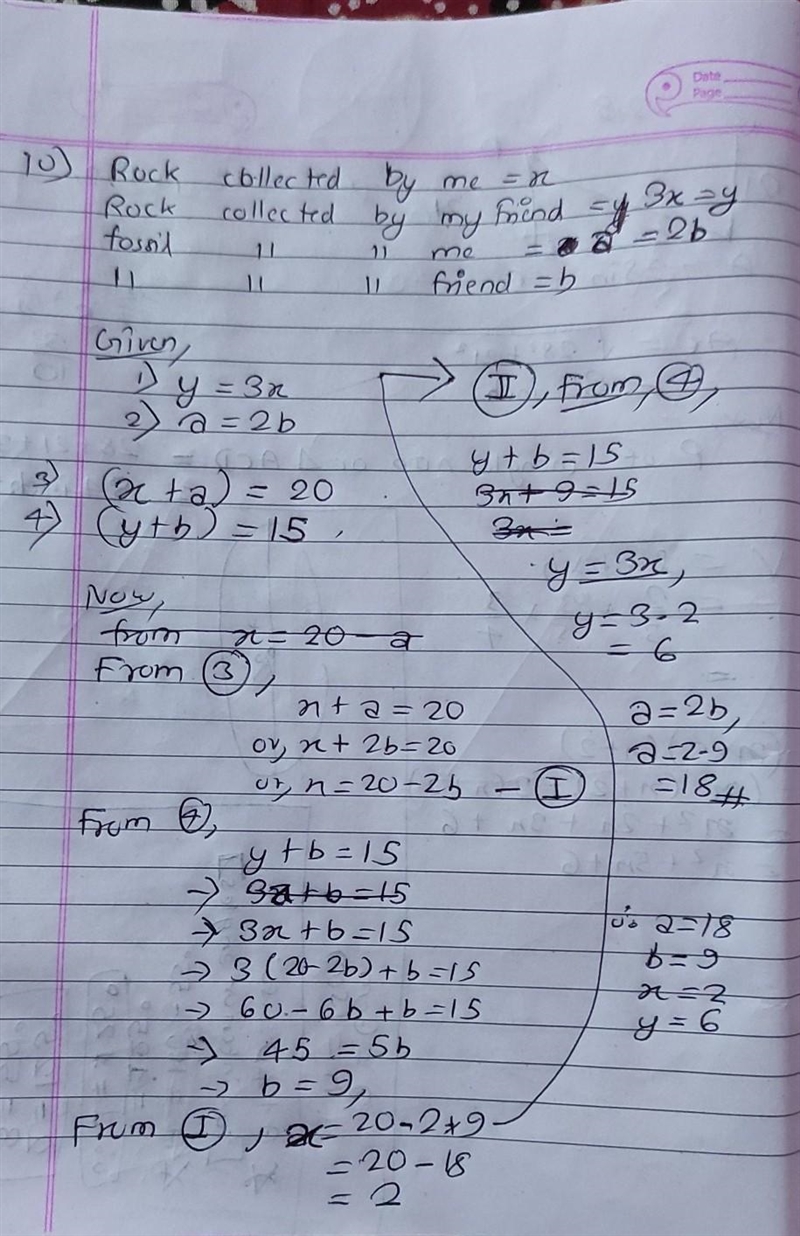 Date
Page
10) Rock collected by me = x
Rock collected by my friend = y 3x = y
fossil 11 11 me = a = 2b
11 11 11 friend = b
Given,
1) y = 3x
2) a = 2b
3) (x + a) = 20
4) (y + b) = 15
Now,
from x = 20 - a
From ③,
x + a = 20
or, x + 2b = 20
or, x = 20 - 2b - Ⓘ
From ④,
y + b = 15
→ 3x + b = 15
→ 3x + b = 15
→ 3 (20 - 2b) + b = 15
→ 60 - 6b + b = 15
→ 45 = 5b
→ b = 9,
From Ⓘ, x = 20 - 2 * 9
= 20 - 18
= 2
→ II, From, ④,
y + b = 15
3x + 9 = 15
3x =
y = 3x,
y = 3 · 2
= 6
a = 2b,
a = 2 · 9
= 18 #
∴ a = 18
b = 9
x = 2
y = 6